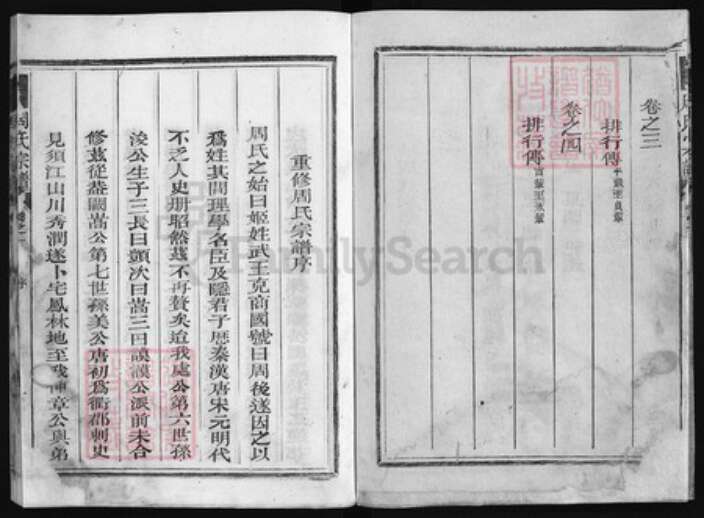 卷之三
排行傳
卷之四
排行傳
重修周氏宗譜序
周氏之始曰姬姓武王克商國號曰周後遂因之以
爲姓其間理學名臣及隱君子歷秦漢唐宋元明代
不乏人史册昭然茲不再贅矣迨我處公第六世孫
浚公生子三長曰顗次曰嵩三曰謨謨公派前未合
修茲從葢闕嵩公第七世孫美公唐初爲衢郡刺史
見須江山川秀潤遂卜宅鳳林地至我 章公與弟
周氏宗譜
FamilySearch